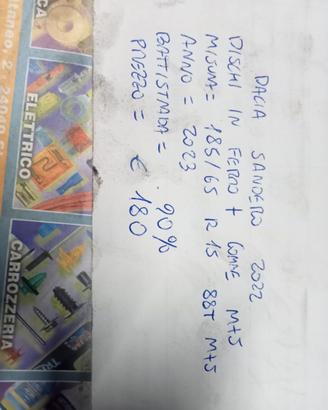 DACIA SANDERO 2022
DISCHI IN FERRO + GOMME M+S
MISURA = 185/65 R 15 88T M+S
ANNO = 2023
BATTISTRADA = 90%
PREZZO = € 180
CA
ELETTRICO
CARROZZERIA